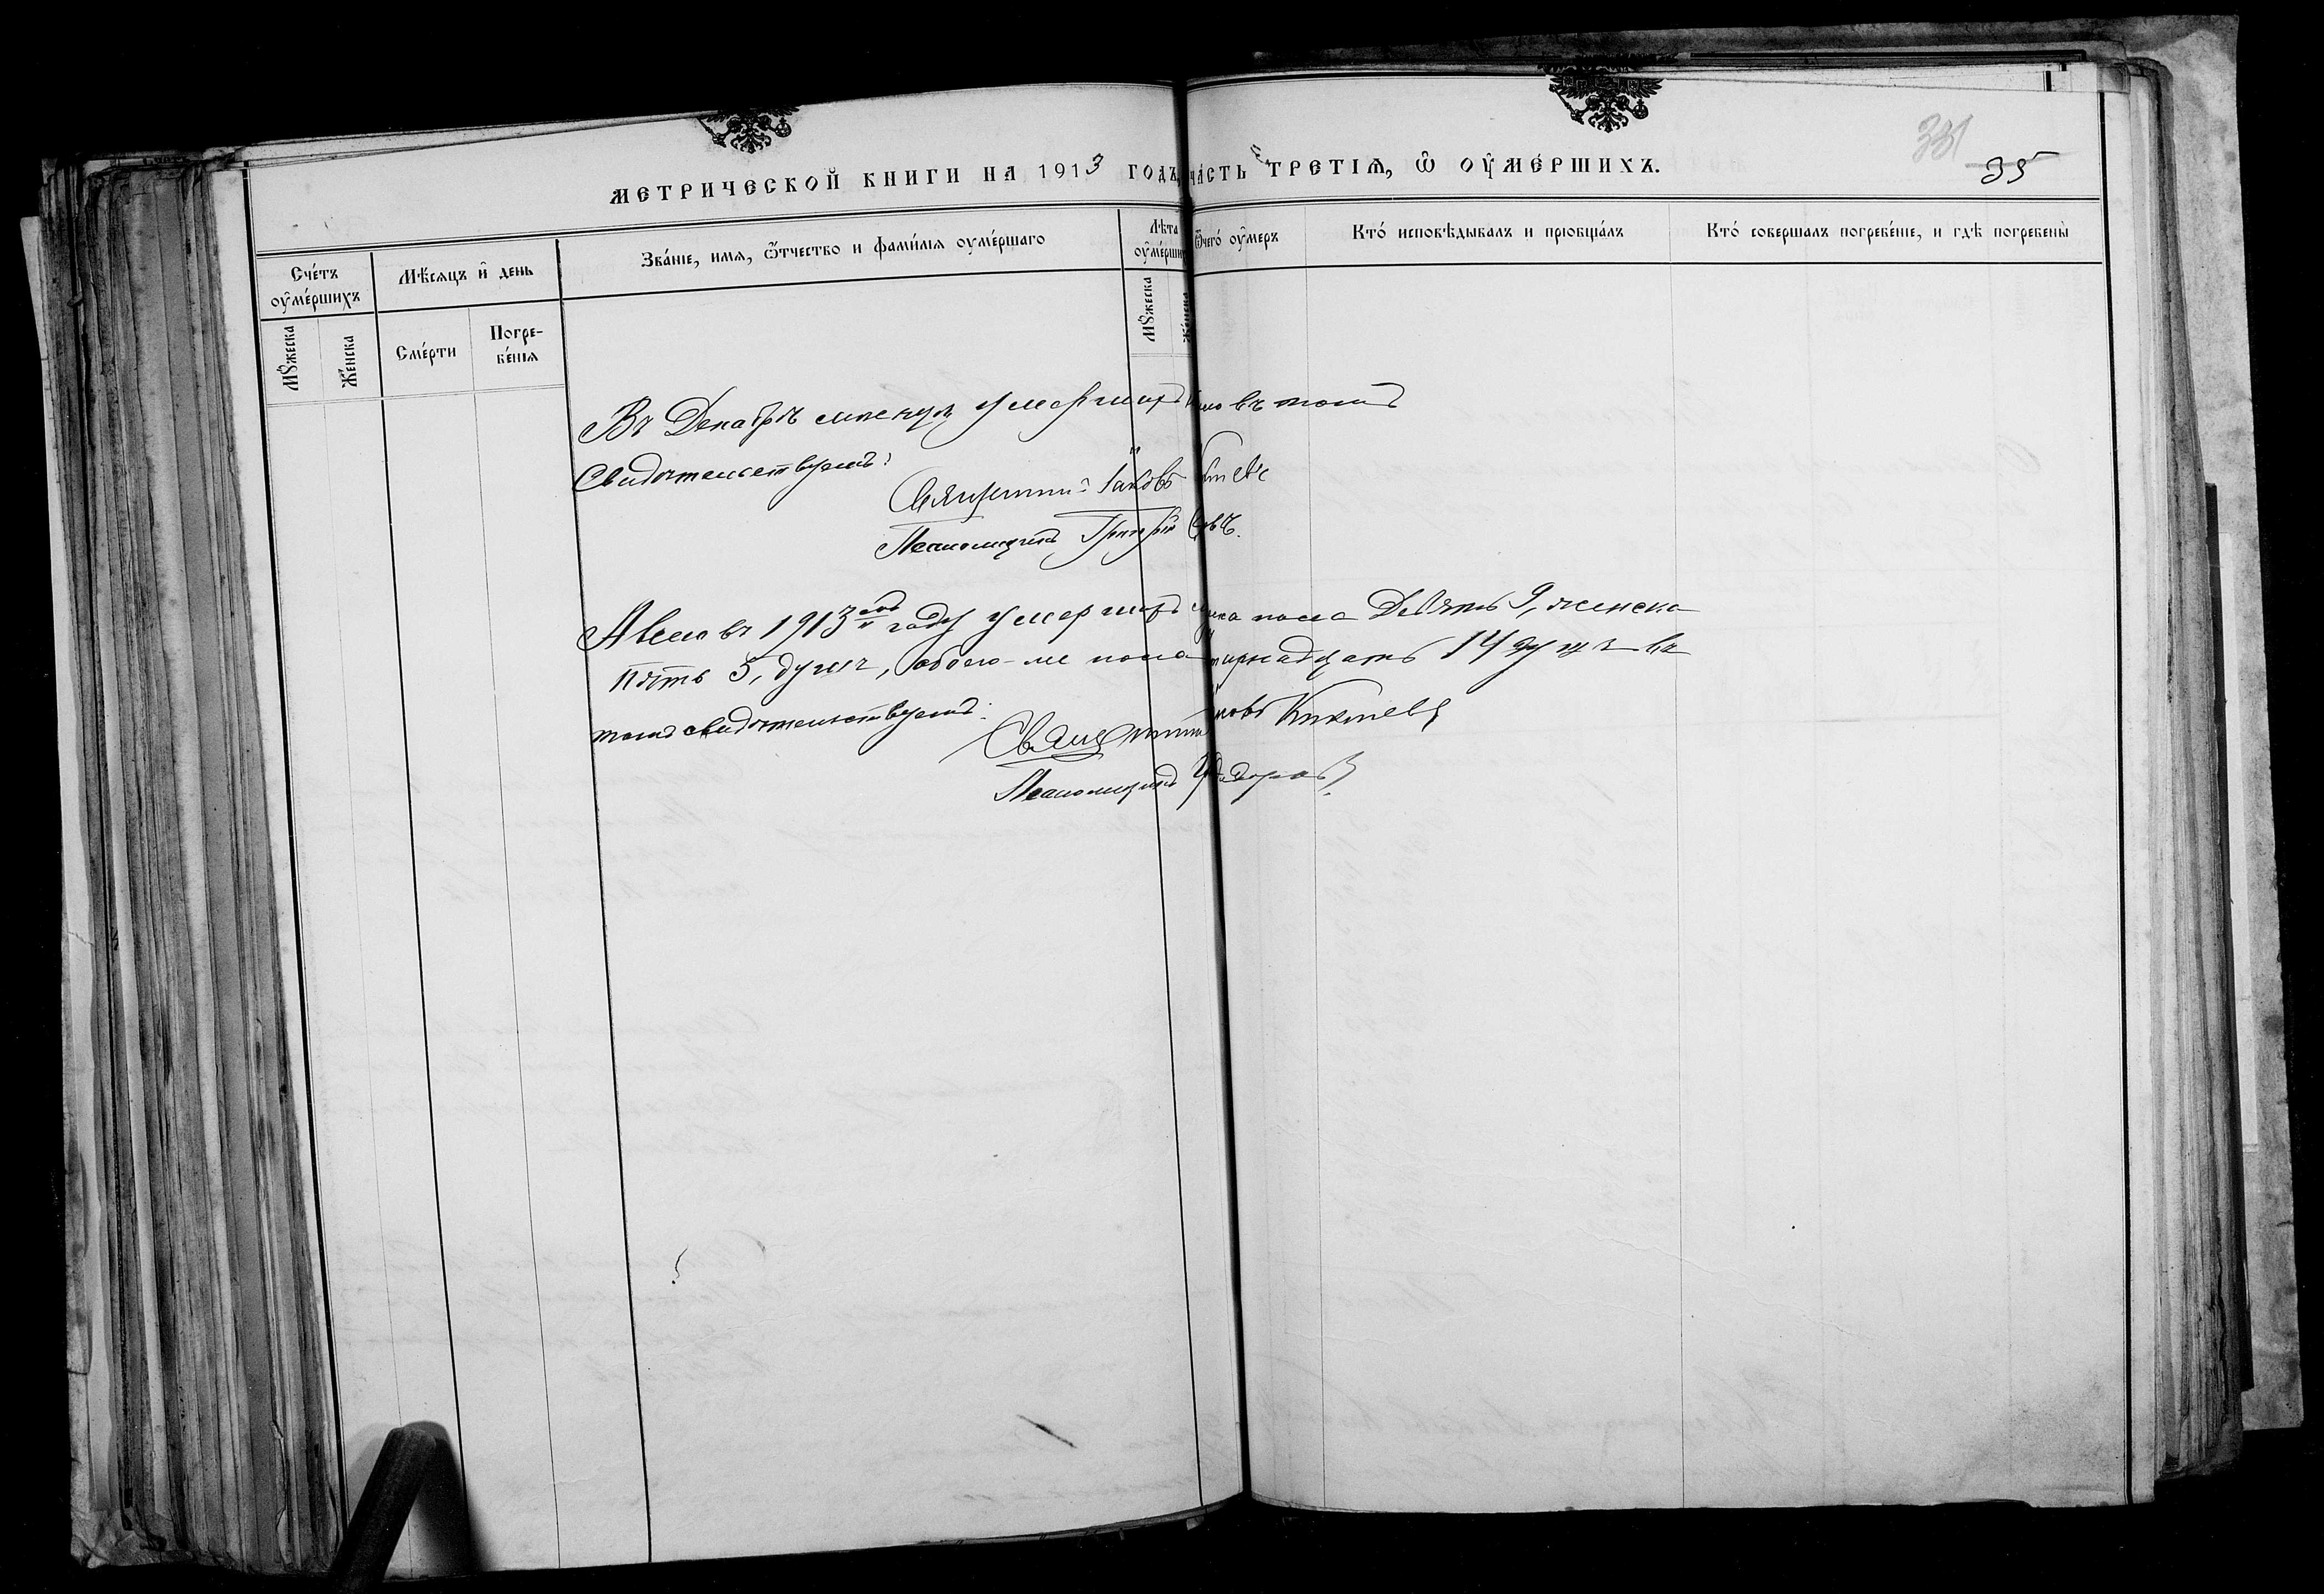 МЕТРИЧЕСКОЙ КНИГИ НА 1913 ГОДЪ, ЧА́СТЬ ТРЕТІѦ, Ѡ ОУМЕ́РШИХЪ.
35
Сче́тъ оуме́ршихъ
Мѣсяцъ и день
Зва́ніе, имя, ѿтчество и фами́лія оуме́ршаго
Лѣта
ѿчего́ оумеръ
Кто́ исповѣдывалъ и пріобща́лъ
Кто́ совершалъ погребе́ніе, и гдѣ погребены
Мꙋжеска
Же́нска
Сме́рти
Погре-
бе́нія
Мꙋжеска
Въ Декабрѣ мѣсяцѣ умершихъ въ томъ
свидѣтельствуемъ:
Священникъ Іаковъ
Псаломщикъ Григорій
А всего въ 1913 году умершихъ пола девять 9, женска
пять 5, душъ, обоего-же пола 14 душъ въ
томъ свидѣтельствуемъ:
Священникъ
Псаломщикъ